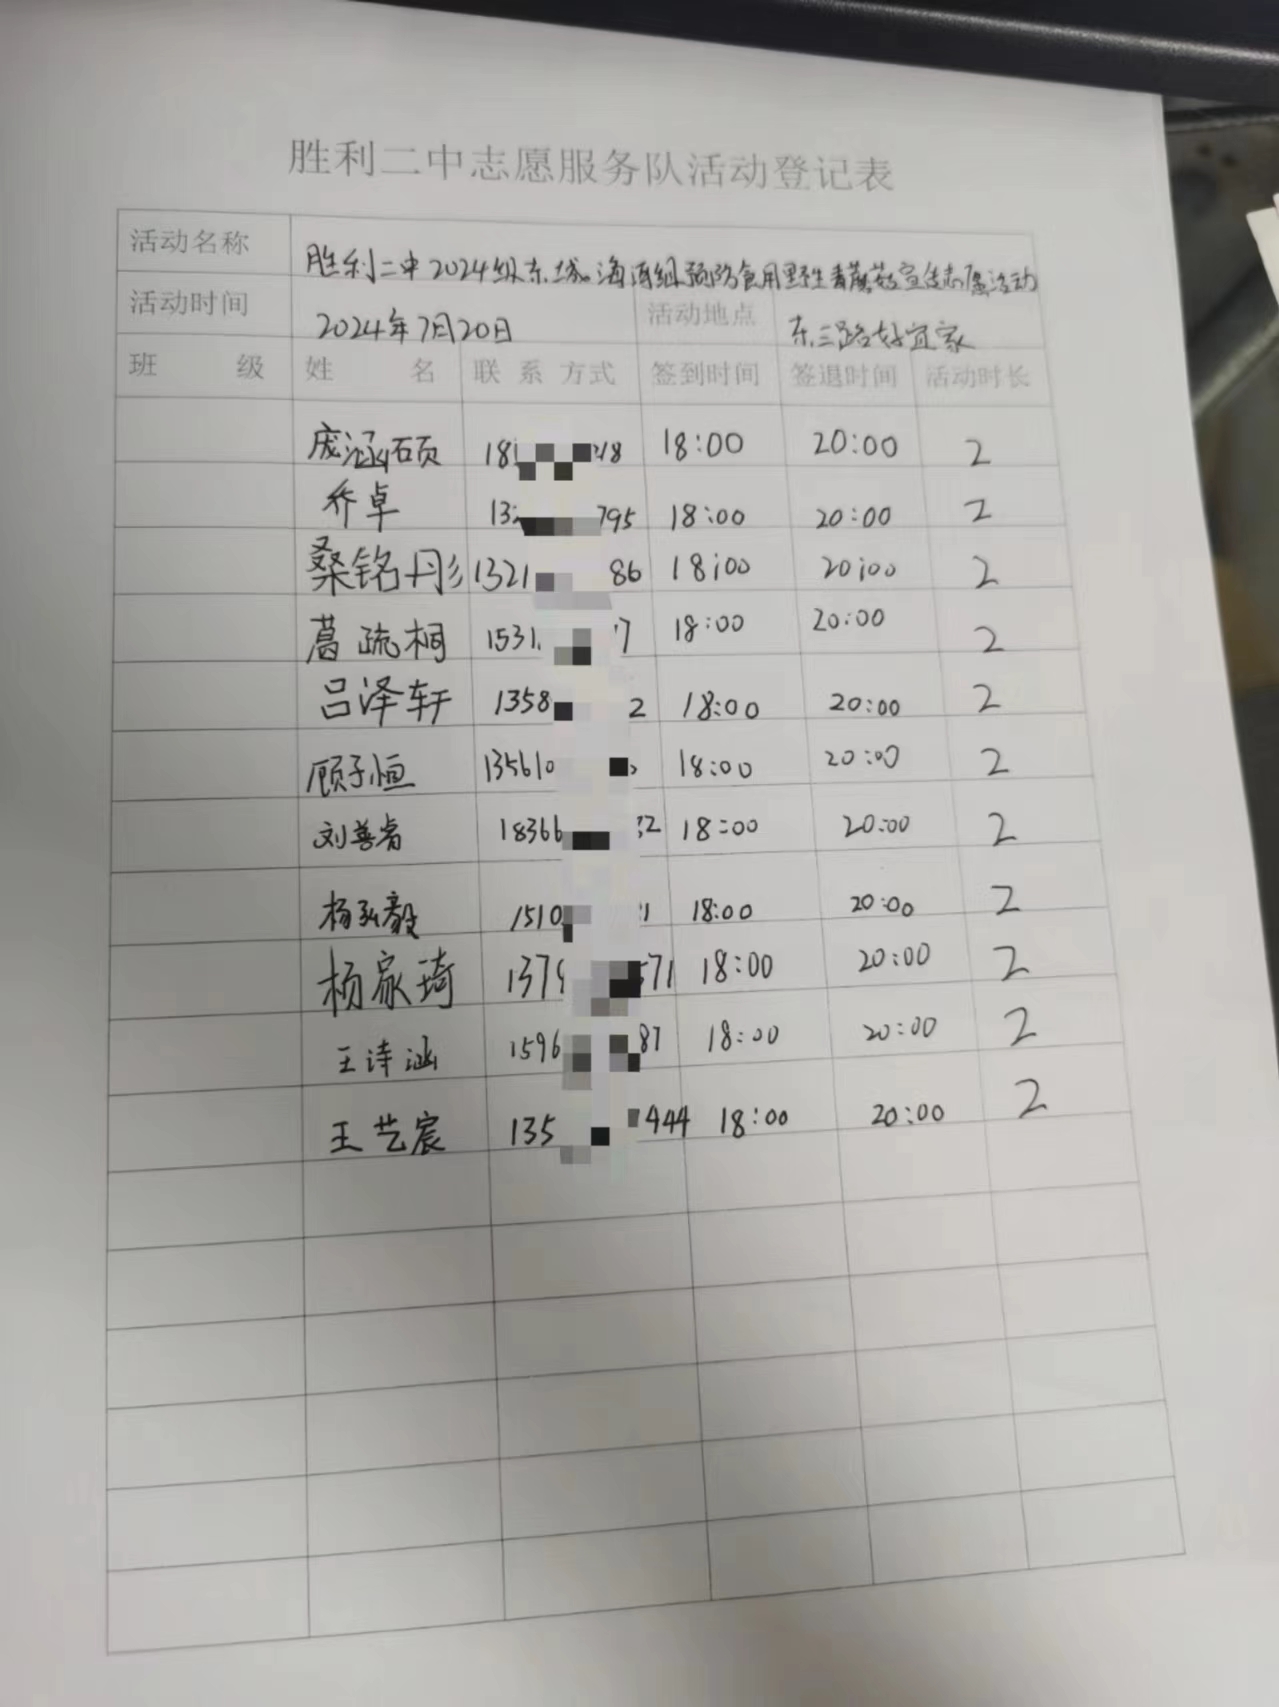 胜利二中志愿服务队活动登记表
活动名称 胜利二中2024级东城海河组预防食用野生毒蘑菇宣传志愿活动
活动时间 2024年7月20日 活动地点 东三路好宜家
班 级 姓 名 联系方式 签到时间 签退时间 活动时长
庞涵硕 18 218 18:00 20:00 2
乔卓 13 795 18:00 20:00 2
桑铭彤 1321 86 18:00 20:00 2
葛疏桐 1531 7 18:00 20:00 2
吕泽轩 1358 2 18:00 20:00 2
顾子恒 135610 18:00 20:00 2
刘善睿 18366 32 18:00 20:00 2
杨弘毅 1510 1 18:00 20:00 2
杨家琦 1379 571 18:00 20:00 2
王诗涵 1596 87 18:00 20:00 2
王艺宸 135 444 18:00 20:00 2